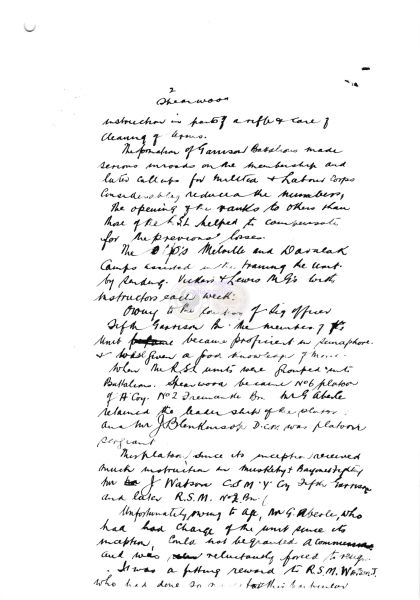 2
Spearwood
instruction in parts of a rifle & care of
cleaning of arms.
The formation of Garrison Battalions made
serious inroads on the membership and
later call ups for Militia & Labour Corps
considerably reduced the numbers,
The opening of the ranks to others than
those of the R.S.L. helped to compensate
for the previous losses.
The O/C's Melville and Dardalak
Camps assisted in the training the Unit
by sending Vickers & Lewis M.G's with
instructors each week.
Owing to the of Sig officer
Fifth Garrison Bn the members of the
Unit became proficient in semaphore
& given a good knowledge of morse.
When the R.S.L units were grouped into
Battalions. Spearwood became No 6 platoon
of A Coy. No 2 Fremantle Bn. Mr G Aberle
retained the leader ship of the platoon
and Mr J Blenkinsop D.C.M. was platoon
sergeant
This platoon since its inception received
much instruction in Musketry & Bayonet
J Watson C.S.M. Coy Fifth Garrison
and later R.S.M. No 2 Bn.
Unfortunately owing to age, Mr G Aberle, who
had had charge of the unit since its
inception, could not be granted a commission
and was reluctantly forced to resign.
It was a fitting reward to R.S.M. Watson J.
who had done so much this particular